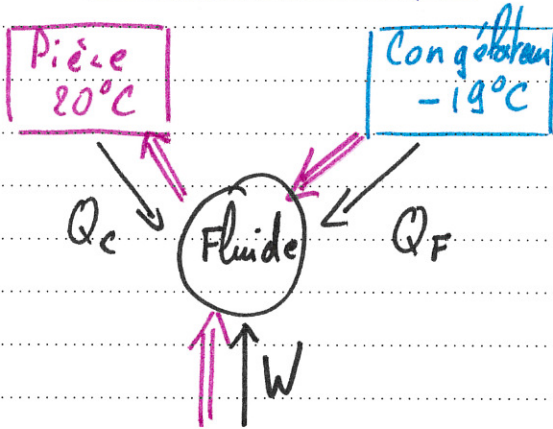 Pièce
20°C
Congélateur
-19°C
Qc
Fluide
QF
W